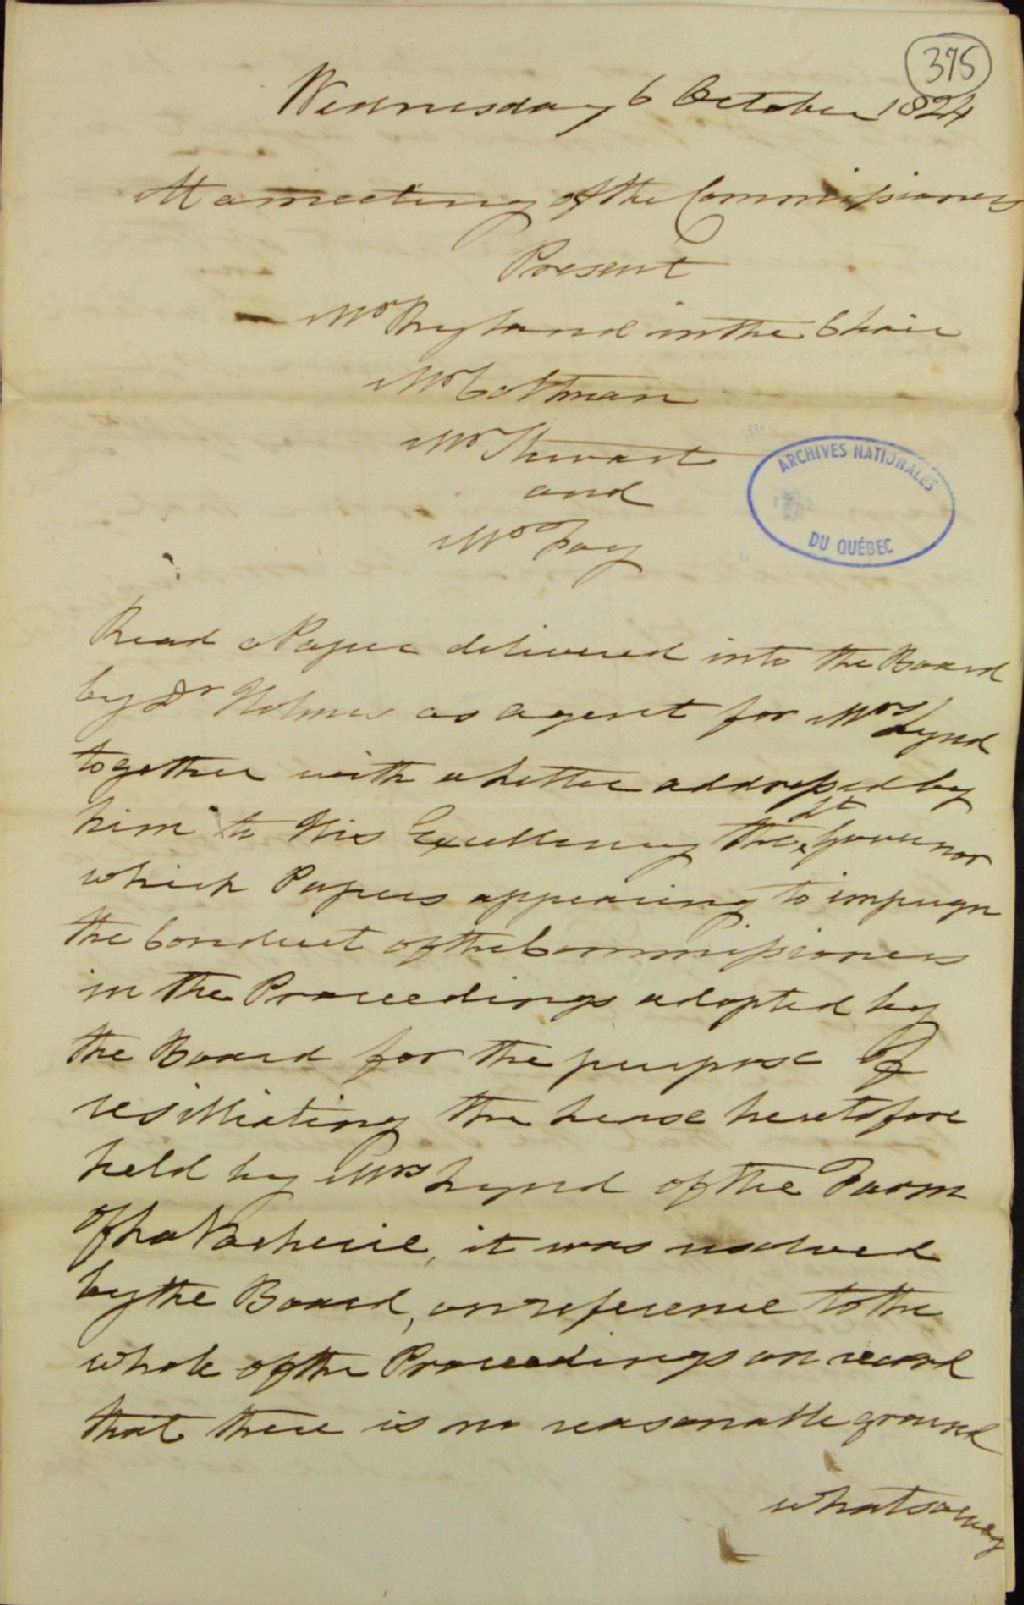 375
Wednesday 6 October 1824
At a meeting of the Commissioners
Present
Mr Ryland in the Chair
Mr Coltman
Mr Stewart
and
Mr Foy
ARCHIVES NATIONALES
DU QUÉBEC
Read a Paper delivered into the Board
by Dr Holmes as agent for Mrs Lynd
together with a Letter addressed by
him to His Excellency the Lt Governor
which Papers appearing to impugn
the Conduct of the Commissioners
in the Proceedings adopted by
the Board for the purpose of
resilliating the Lease heretofore
held by Mrs Lynd of the Farm
of La Vacherie, it was resolved
by the Board, on reference to the
whole of the Proceedings on record
that there is no reasonable ground
whatsoever